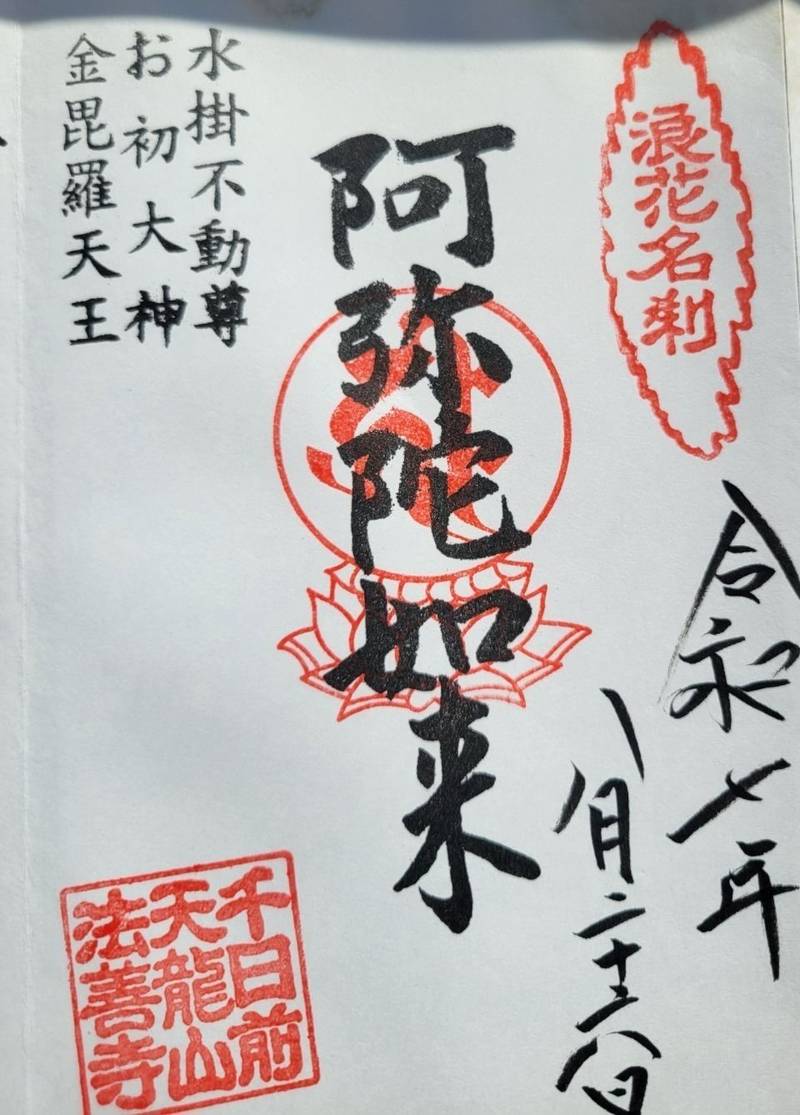 浪花名刹
令和七年
八月二十六日
阿弥陀如来
水掛不動尊
お初大神
金毘羅天王
千日前
天龍山
法善寺